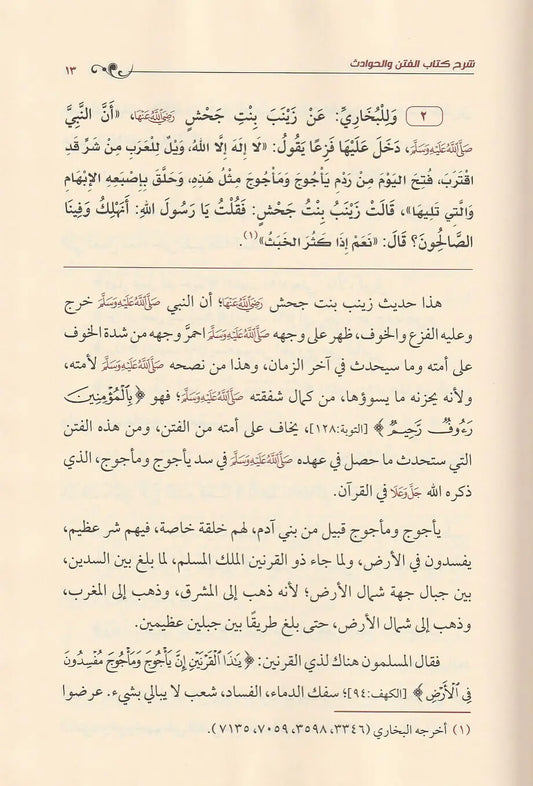 شرح كتاب الفتن والحوادث
١٣
٢ وَلِلْبُخَارِيِّ: عَنْ زَيْنَبَ بِنْتِ جَحْشٍ رَضِيَ اللَّهُ عَنْهَا، «أَنَّ النَّبِيَّ
صَلَّى اللَّهُ عَلَيْهِ وَسَلَّمَ، دَخَلَ عَلَيْهَا فَزِعًا يَقُولُ: «لَا إِلَهَ إِلَّا اللهُ، وَيْلٌ لِلْعَرَبِ مِنْ شَرٍّ قَدِ
اقْتَرَبَ، فُتِحَ الْيَوْمَ مِنْ رَدْمِ يَأْجُوجَ وَمَأْجُوجَ مِثْلُ هَذِهِ، وَحَلَّقَ بِإِصْبَعِهِ الإِبْهَامِ
وَالَّتِي تَلِيهَا»، قَالَتْ زَيْنَبُ بِنْتُ جَحْشٍ: فَقُلْتُ يَا رَسُولَ اللهِ: أَنَهْلِكُ وَفِينَا
الصَّالِحُونَ؟ قَالَ: «نَعَمْ إِذَا كَثُرَ الخَبَثُ»(١).
هذا حديث زينب بنت جحش رَضِيَ اللَّهُ عَنْهَا؛ أن النبي صَلَّى اللَّهُ عَلَيْهِ وَسَلَّمَ خرج
وعليه الفزع والخوف، ظهر على وجهه صَلَّى اللَّهُ عَلَيْهِ وَسَلَّمَ احمرَّ وجهه من شدة الخوف
على أمته وما سيحدث في آخر الزمان، وهذا من نصحه صَلَّى اللَّهُ عَلَيْهِ وَسَلَّمَ لأمته،
ولأنه يحزنه ما يسوؤها، من كمال شفقته صَلَّى اللَّهُ عَلَيْهِ وَسَلَّمَ؛ فهو ﴿بِالْمُؤْمِنِينَ
رَءُوفٌ رَّحِيمٌ﴾ [التوبة:١٢٨]، يخاف على أمته من الفتن، ومن هذه الفتن
التي ستحدث ما حصل في عهده صَلَّى اللَّهُ عَلَيْهِ وَسَلَّمَ في سد يأجوج ومأجوج، الذي
ذكره الله جَلَّ وَعَلَا في القرآن.
يأجوج ومأجوج قبيل من بني آدم، لهم خلقة خاصة، فيهم شر عظيم،
يفسدون في الأرض، ولما جاء ذو القرنين الملك المسلم، لما بلغ بين السدين،
بين جبال جهة شمال الأرض؛ لأنه ذهب إلى المشرق، وذهب إلى المغرب،
وذهب إلى شمال الأرض، حتى بلغ طريقًا بين جبلين عظيمين.
فقال المسلمون هناك لذي القرنين: ﴿يَٰذَا الْقَرْنَيْنِ إِنَّ يَأْجُوجَ وَمَأْجُوجَ مُفْسِدُونَ
فِي الْأَرْضِ﴾ [الكهف:٩٤]؛ سفك الدماء، الفساد، شعب لا يبالي بشيء. عرضوا
(١) أخرجه البخاري (٣٣٤٦، ٣٥٩٨، ٧٠٥٩، ٧١٣٥).